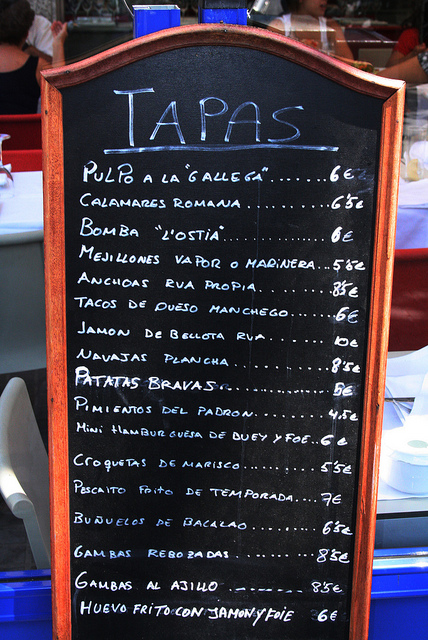 TAPAS
PULPO A LA "GALLEGA".......6€
CALAMARES ROMANA..........6'5€
BOMBA "L'OSTIA"..............6€
MEJILLONES VAPOR O MARINERA...5'5€
ANCHOAS RUA PROPIA..........8'5€
TACOS DE QUESO MANCHEGO.......6€
JAMON DE BELLOTA RUA..........10€
NAVAJAS PLANCHA..............8'5€
PATATAS BRAVAS..............5€
PIMIENTOS DEL PADRON..........4,5€
MINI HAMBURGUESA DE BUEY Y FOE..6€
CROQUETAS DE MARISCO.........5'5€
PESCAITO FRITO DE TEMPORADA....7€
BUÑUELOS DE BACALAO.........6'5€
GAMBAS REBOZADAS..........8'5€
GAMBAS AL AJILLO..........8'5€
HUEVO FRITO CON JAMON Y FOIE 6€